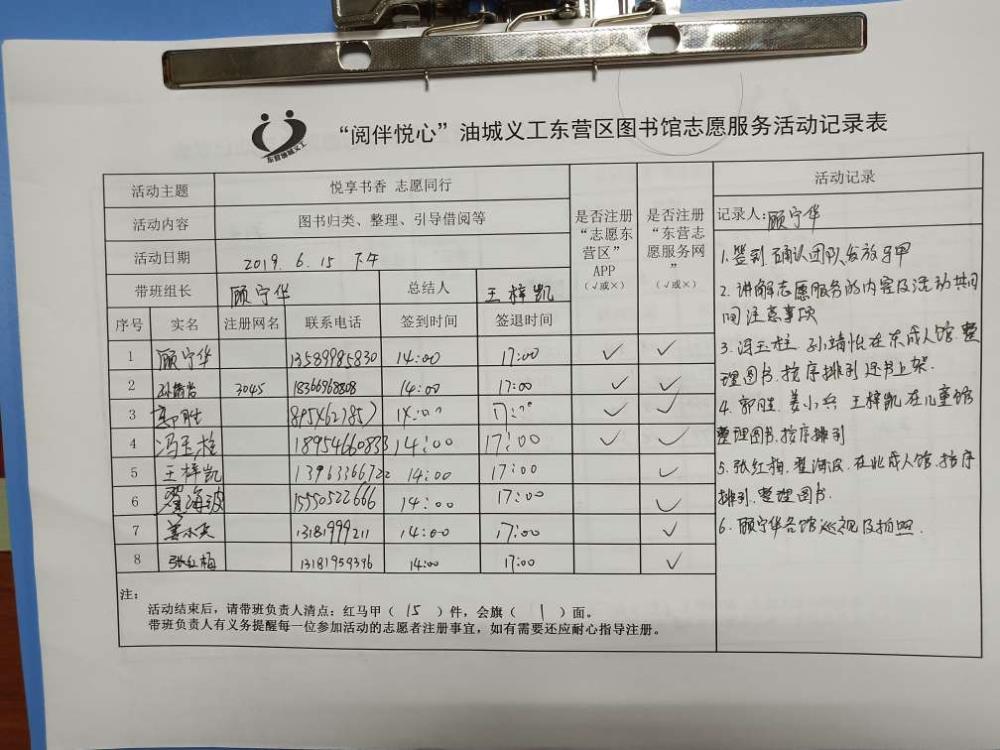 东营油城义工
“阅伴悦心”油城义工东营区图书馆志愿服务活动记录表
活动主题 悦享书香 志愿同行
活动内容 图书归类、整理、引导借阅等
活动日期 2019.6.15 下午
带班组长 顾宁华 总结人 王梓凯
是否注册“志愿东营区”APP（√或×）
是否注册“东营志愿服务网”（√或×）
序号 实名 注册网名 联系电话 签到时间 签退时间
1 顾宁华 13589985830 14:00 17:00 √ √
2 3045 18366968808 14:00 17:00 √ √
3 郭胜 14:00 17:00 √ √
4 冯玉柱 18954660833 14:00 17:00 √ √
5 王梓凯 13963366722 14:00 17:00 √
6 翟海波 15550522666 14:00 17:00 √
7 姜小兵 13181999211 14:00 17:00 √
8 张红梅 13181959396 14:00 17:00 √
注：
活动结束后，请带班负责人清点：红马甲（ 15 ）件，会旗（ 1 ）面。
带班负责人有义务提醒每一位参加活动的志愿者注册事宜，如有需要还应耐心指导注册。
活动记录
记录人：顾宁华
1.签到 确认团队发放马甲
2.讲解志愿服务的内容及活动共同
间注意事项
3.冯玉柱 孙靖怡在东成人馆.整
理图书.按序排列 还书上架.
4.郭胜 姜小兵 王梓凯在儿童馆
整理图书.按序排列
5.张红梅.翟海波.在北成人馆.按序
排列.整理图书.
6.顾宁华各馆巡视及拍照.